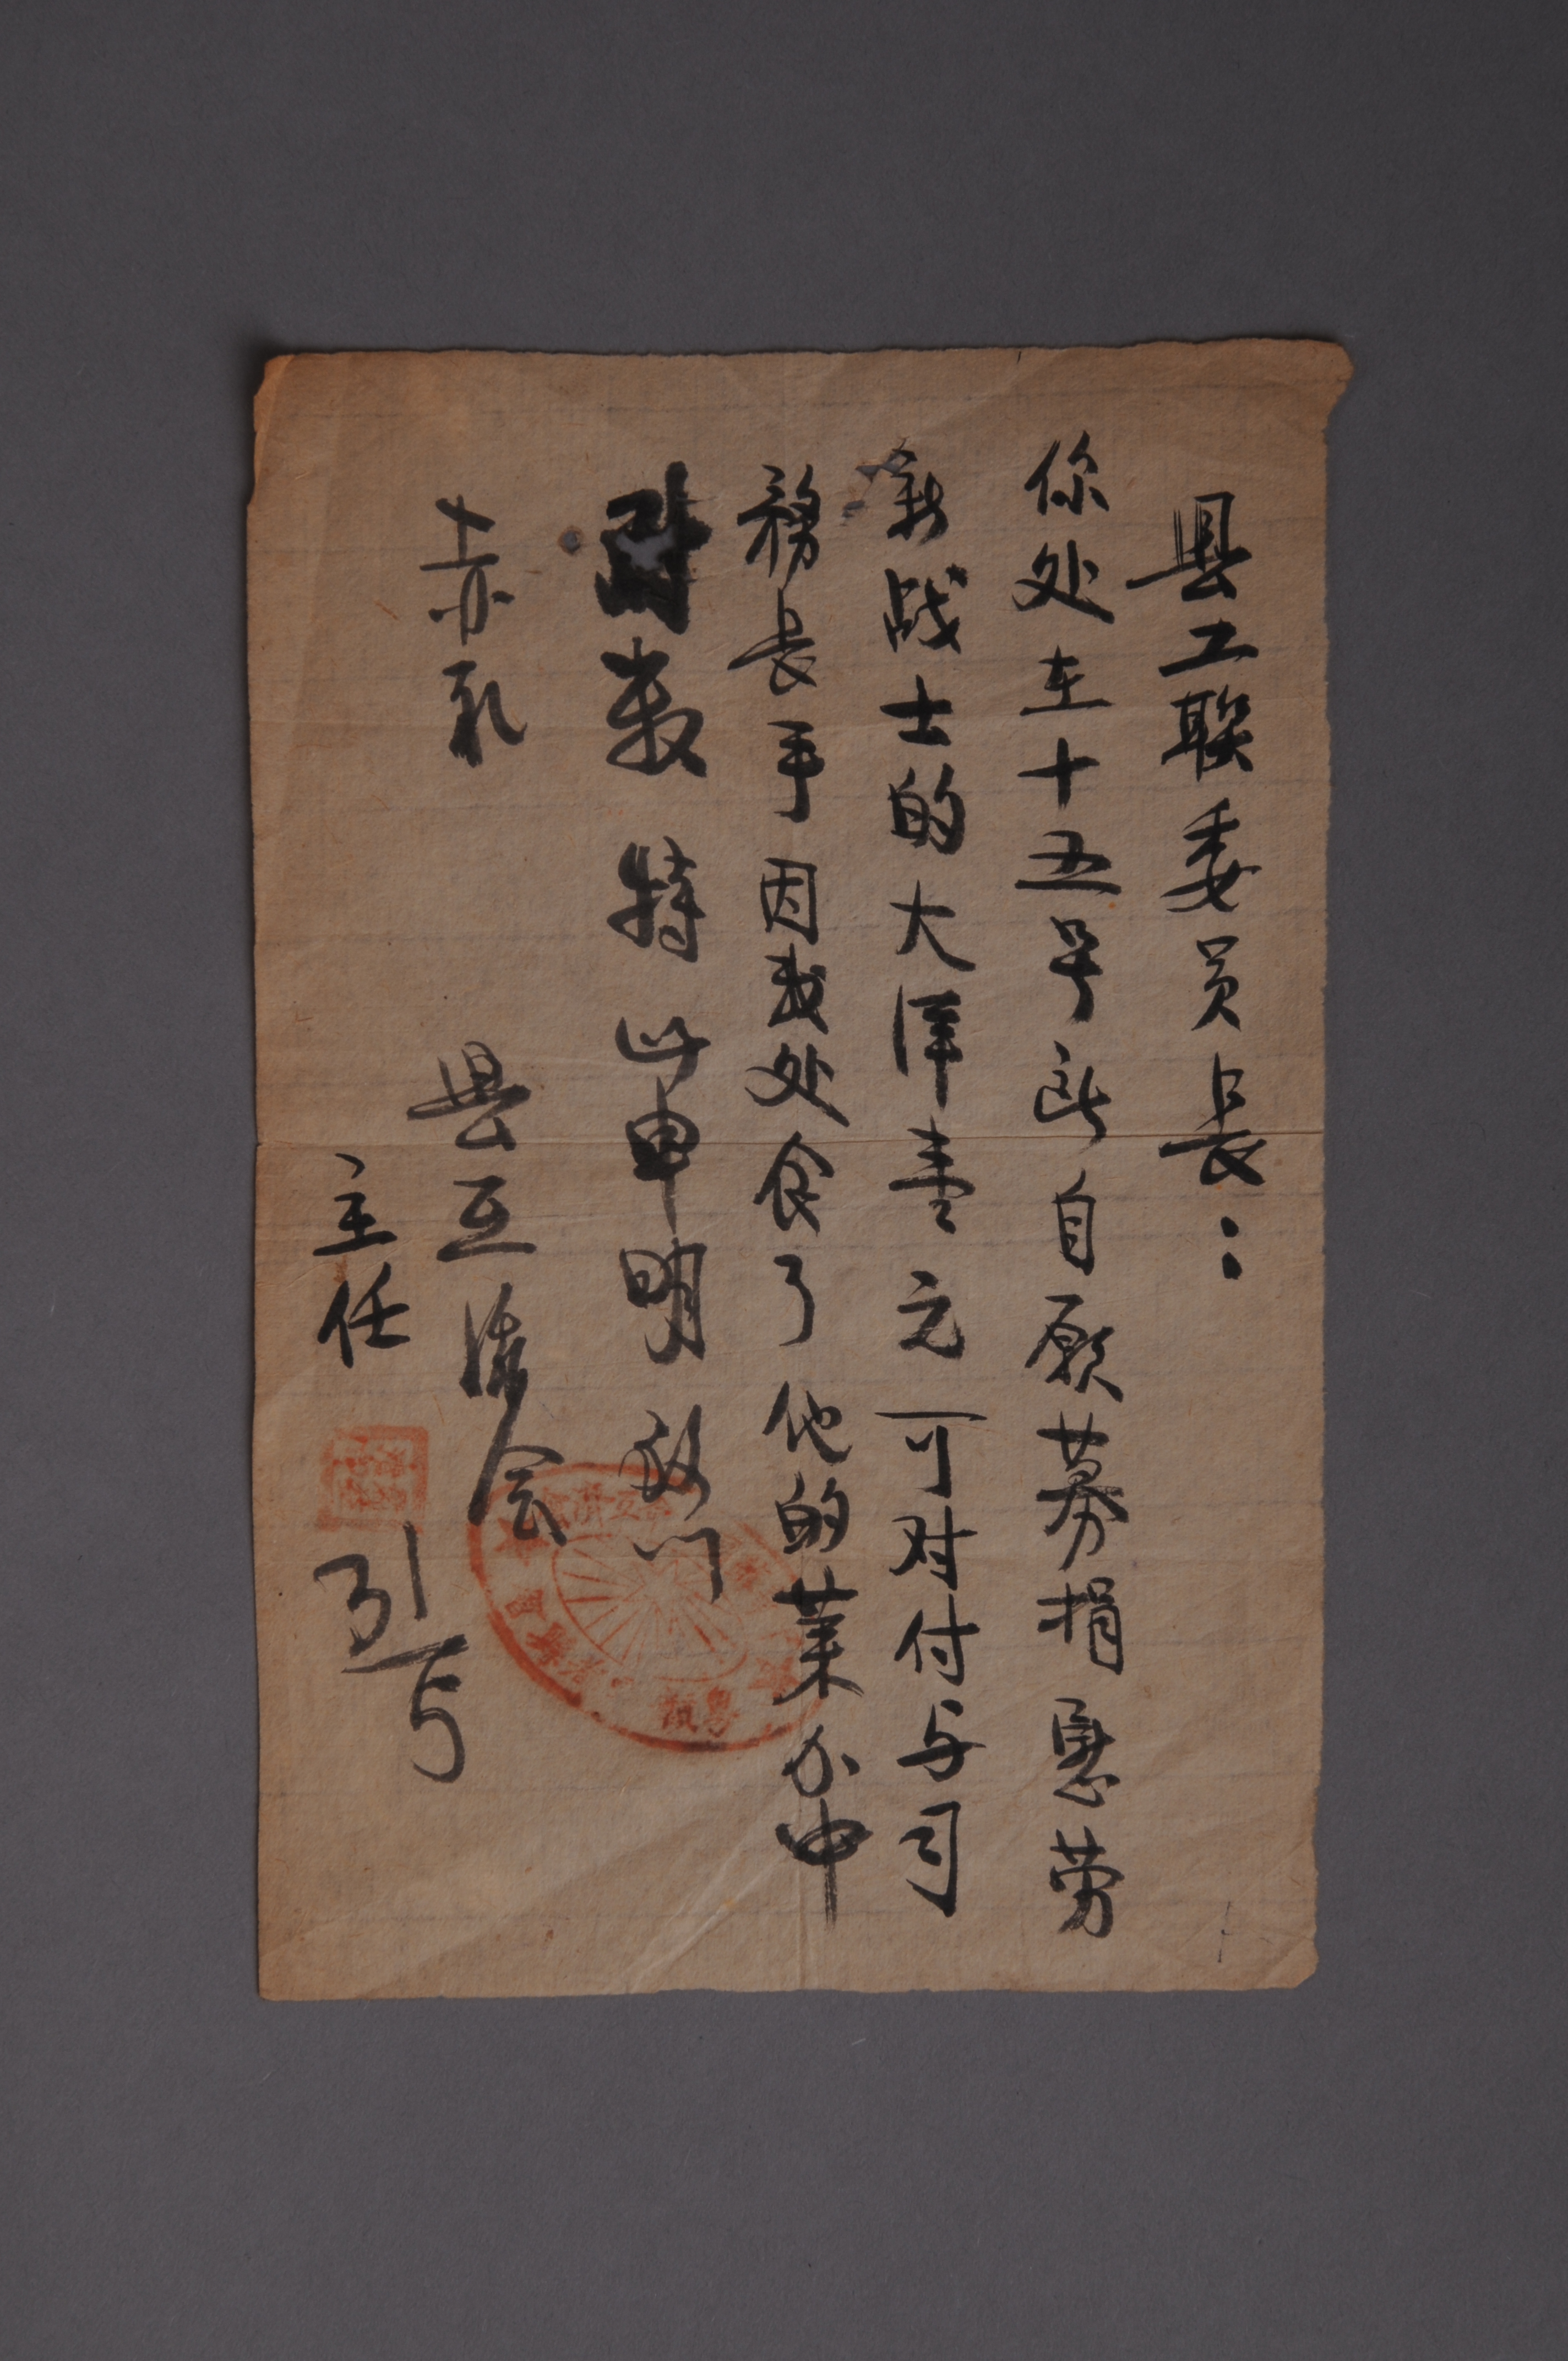 县工联委员长：
你处在十五号所自愿募捐慰劳
新战士的大洋壹元可对付与司
務长手因我处食了他的菜力中
对数特此申明致
赤礼
县互济会
主任